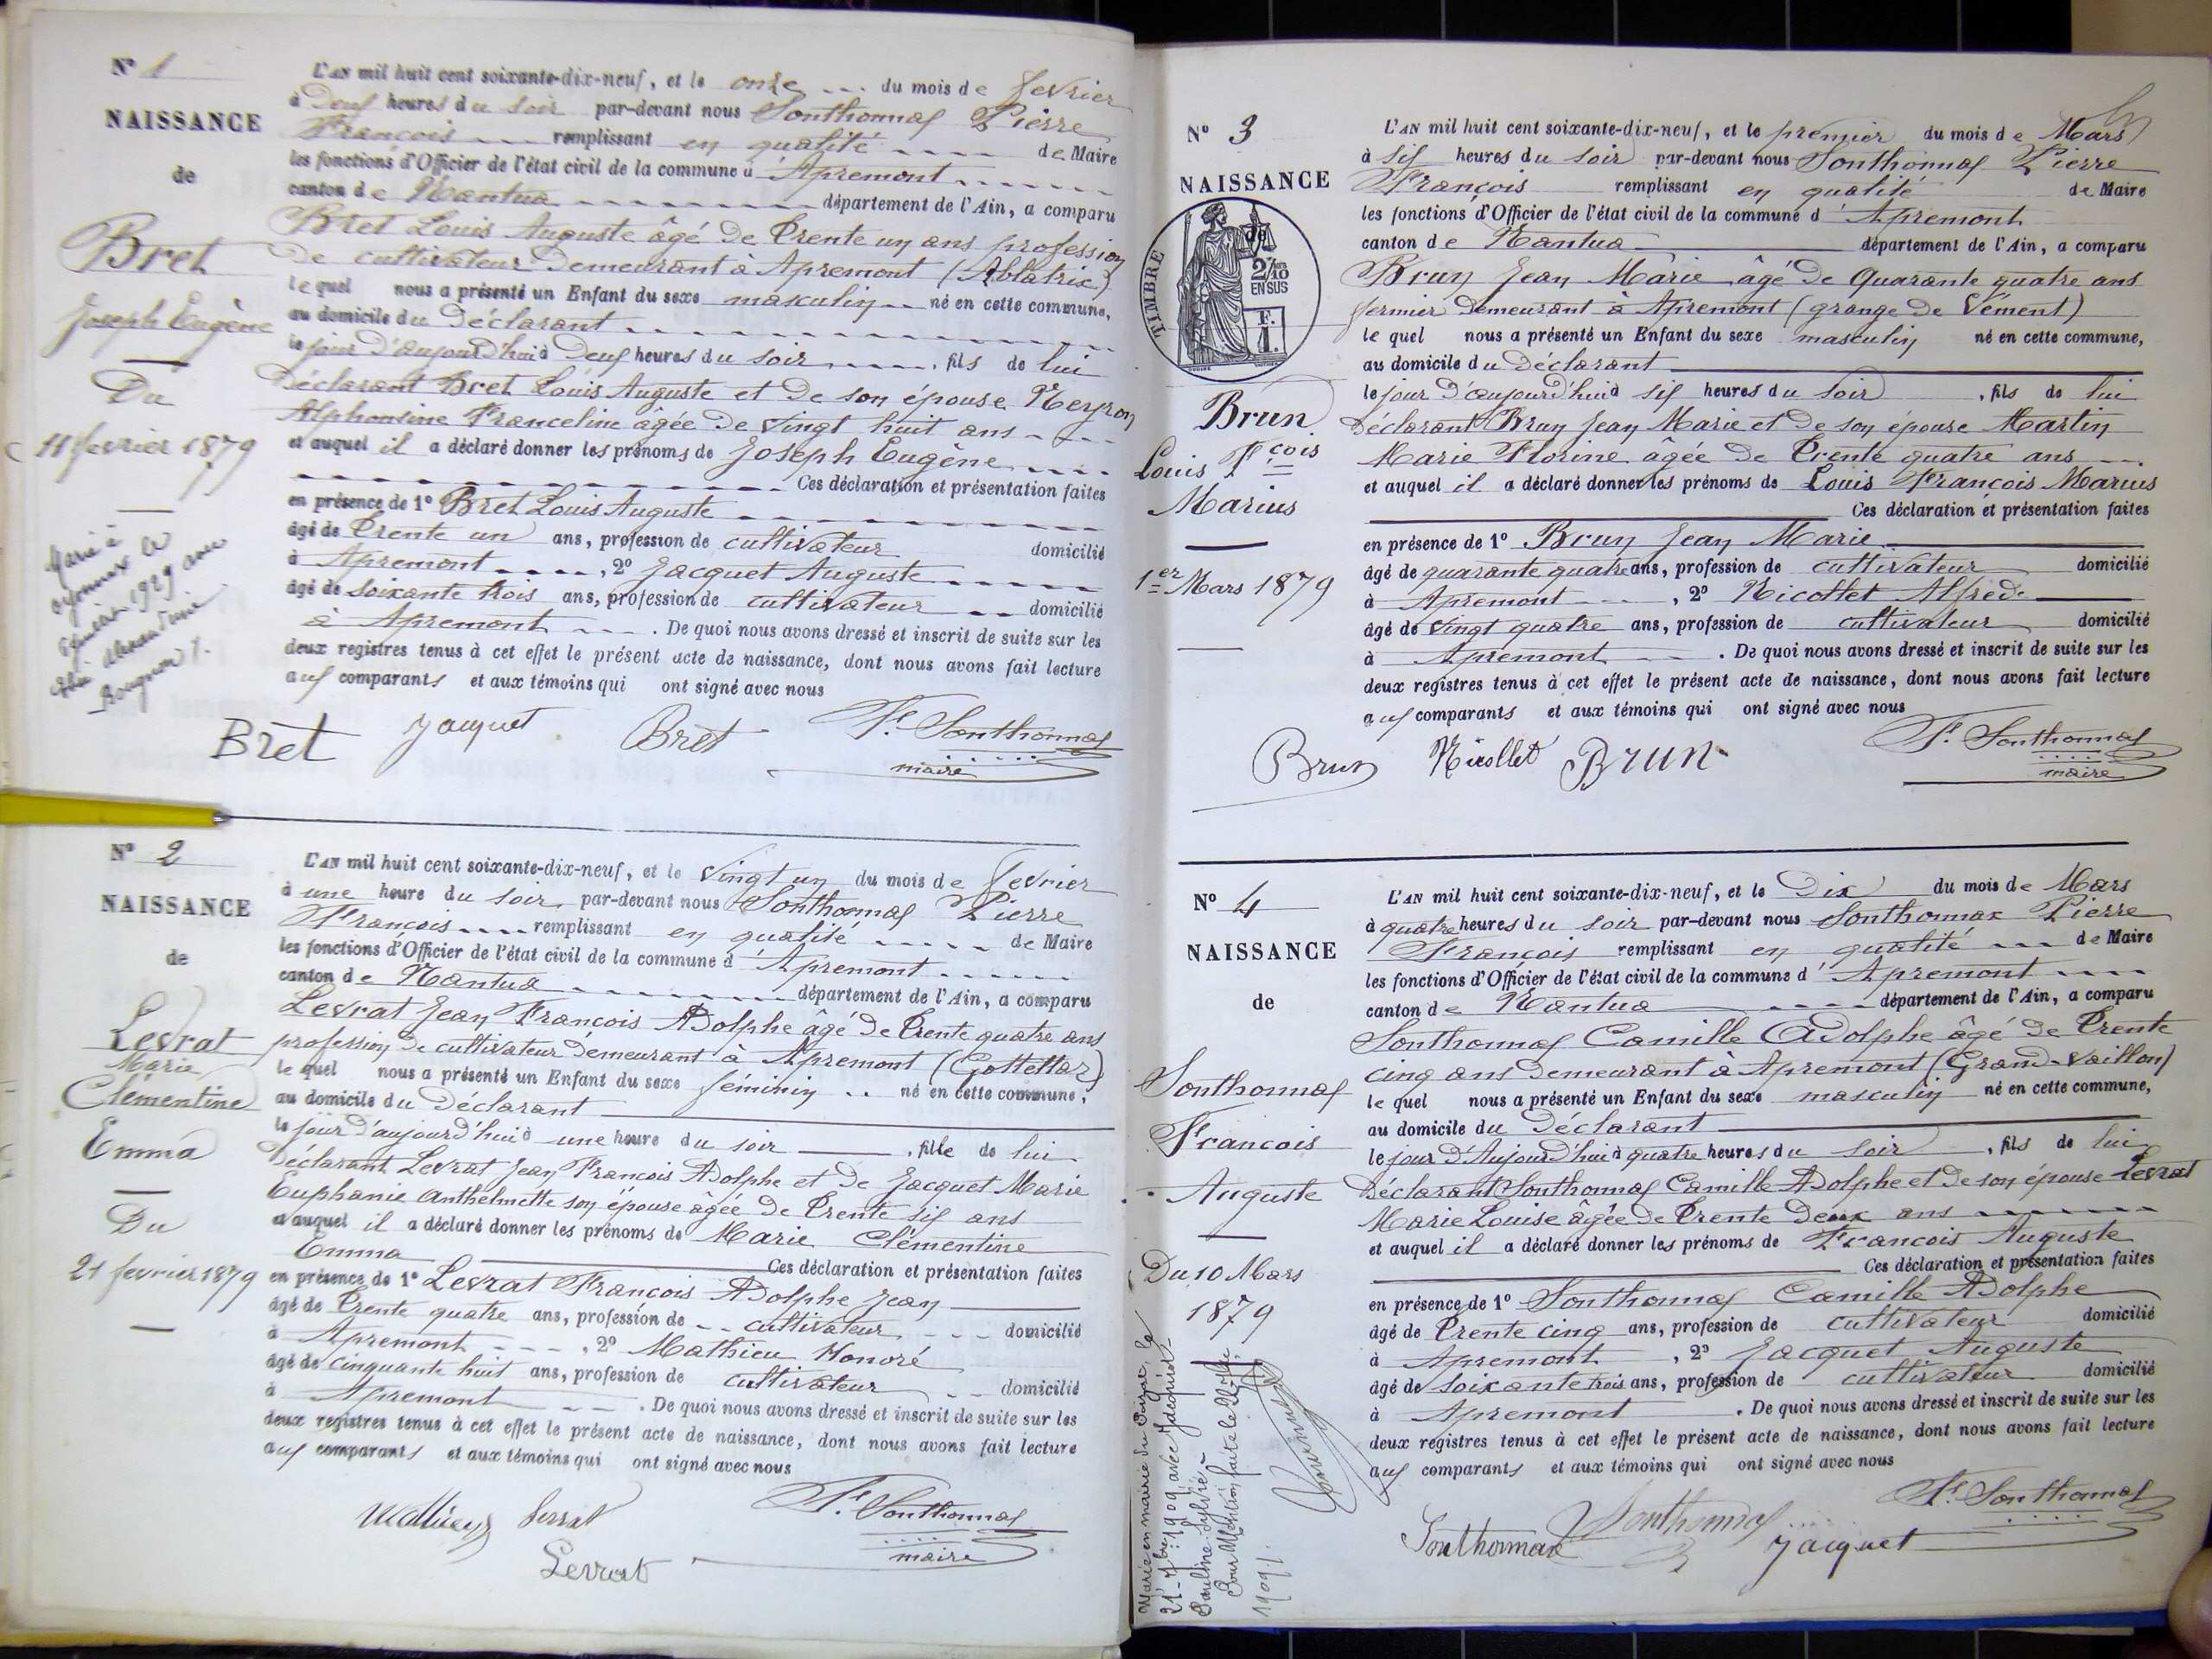 Nº 1
NAISSANCE
de
Bret
Joseph Eugène
Du
11 fevrier 1879
Marié à
oyonnax le
1929 avec
Alexandrine
L'AN mil huit cent soixante-dix-neuf, et le onze du mois de fevrier
à Deux heures du soir par-devant nous Sonthonnax Pierre
François remplissant en qualité de Maire
les fonctions d'Officier de l'état civil de la commune d'Apremont
canton de Nantua département de l'Ain, a comparu
Bret Louis Auguste âgé de Trente un ans profession
de cultivateur demeurant à Apremont (Ablatrix)
lequel nous a présenté un Enfant du sexe masculin né en cette commune,
au domicile du Déclarant
le jour d'aujourd'hui à Deux heures du soir, fils de lui
Déclarant Bret Louis Auguste et de son épouse Neyron
Alphonsine Franceline âgée de vingt huit ans
et auquel il a déclaré donner les prénoms de Joseph Eugène
Ces déclaration et présentation faites
en présence de 1º Bret Louis Auguste
âgé de Trente un ans, profession de cultivateur domicilié
à Apremont, 2º Jacquet Auguste
âgé de soixante trois ans, profession de cultivateur domicilié
à Apremont. De quoi nous avons dressé et inscrit de suite sur les
deux registres tenus à cet effet le présent acte de naissance, dont nous avons fait lecture
aux comparants et aux témoins qui ont signé avec nous
Bret Jacquet Bret Fs Sonthonnax
maire
Nº 2
NAISSANCE
de
Levrat
Marie
Clémentine
Emma
Du
21 fevrier 1879
L'AN mil huit cent soixante-dix-neuf, et le vingt un du mois de fevrier
à une heure du soir par-devant nous Sonthonnax Pierre
François remplissant en qualité de Maire
les fonctions d'Officier de l'état civil de la commune d'Apremont
canton de Nantua département de l'Ain, a comparu
Levrat Jean François Adolphe âgé de Trente quatre ans
profession de cultivateur demeurant à Apremont (Gottettaz)
lequel nous a présenté un Enfant du sexe féminin né en cette commune,
au domicile du Déclarant
le jour d'aujourd'hui à une heure du soir, fille de lui
Déclarant Levrat Jean François Adolphe et de Jacquet Marie
Euphanie Anthelmette son épouse âgée de Trente six ans
et auquel il a déclaré donner les prénoms de Marie Clémentine
Emma Ces déclaration et présentation faites
en présence de 1º Levrat François Adolphe Jean
âgé de Trente quatre ans, profession de cultivateur domicilié
à Apremont, 2º Mathieu Honoré
âgé de cinquante huit ans, profession de cultivateur domicilié
à Apremont. De quoi nous avons dressé et inscrit de suite sur les
deux registres tenus à cet effet le présent acte de naissance, dont nous avons fait lecture
aux comparants et aux témoins qui ont signé avec nous
Mathieu Levrat Fs Sonthonnax
Levrat maire
Nº 3
NAISSANCE
de
TIMBRE
2/10 EN SUS
F. 1.
Brun
Louis Fçois
Marius
1er Mars 1879
L'AN mil huit cent soixante-dix-neuf, et le premier du mois de Mars
à six heures du soir par-devant nous Sonthonnax Pierre
François remplissant en qualité de Maire
les fonctions d'Officier de l'état civil de la commune d'Apremont
canton de Nantua département de l'Ain, a comparu
Brun Jean Marie âgé de Quarante quatre ans
fermier demeurant à Apremont (grange de Vément)
lequel nous a présenté un Enfant du sexe masculin né en cette commune,
au domicile du Déclarant
le jour d'aujourd'hui à six heures du soir, fils de lui
Déclarant Brun Jean Marie et de son épouse Martin
Marie Florine âgée de Trente quatre ans
et auquel il a déclaré donner les prénoms de Louis François Marius
Ces déclaration et présentation faites
en présence de 1º Brun Jean Marie
âgé de quarante quatre ans, profession de cultivateur domicilié
à Apremont, 2º Nicollet Alfred
âgé de vingt quatre ans, profession de cultivateur domicilié
à Apremont. De quoi nous avons dressé et inscrit de suite sur les
deux registres tenus à cet effet le présent acte de naissance, dont nous avons fait lecture
aux comparants et aux témoins qui ont signé avec nous
Brun Nicollet BRUN Fs Sonthonnax
maire
Nº 4
NAISSANCE
de
Sonthonnax
François
Auguste
Du 10 Mars
1879
Marié en mairie du
21 - 7bre 1909 avec
Pauline Sylvie
Pour Mention faite le
1909
L'AN mil huit cent soixante-dix-neuf, et le Dix du mois de Mars
à quatre heures du soir par-devant nous Sonthonnax Pierre
François remplissant en qualité de Maire
les fonctions d'Officier de l'état civil de la commune d'Apremont
canton de Nantua département de l'Ain, a comparu
Sonthonnax Camille Adolphe âgé de Trente
cinq ans demeurant à Apremont (Grand-Vaillon)
lequel nous a présenté un Enfant du sexe masculin né en cette commune,
au domicile du Déclarant
le jour d'Aujourd'hui à quatre heures du soir, fils de lui
Déclarant Sonthonnax Camille Adolphe et de son épouse Levrat
Marie Louise âgée de Trente Deux ans
et auquel il a déclaré donner les prénoms de François Auguste
Ces déclaration et présentation faites
en présence de 1º Sonthonnax Camille Adolphe
âgé de Trente cinq ans, profession de cultivateur domicilié
à Apremont, 2º Jacquet Auguste
âgé de soixante trois ans, profession de cultivateur domicilié
à Apremont. De quoi nous avons dressé et inscrit de suite sur les
deux registres tenus à cet effet le présent acte de naissance, dont nous avons fait lecture
aux comparants et aux témoins qui ont signé avec nous
Fs Sonthonnax
Sonthonnax Sonthonnax Jacquet